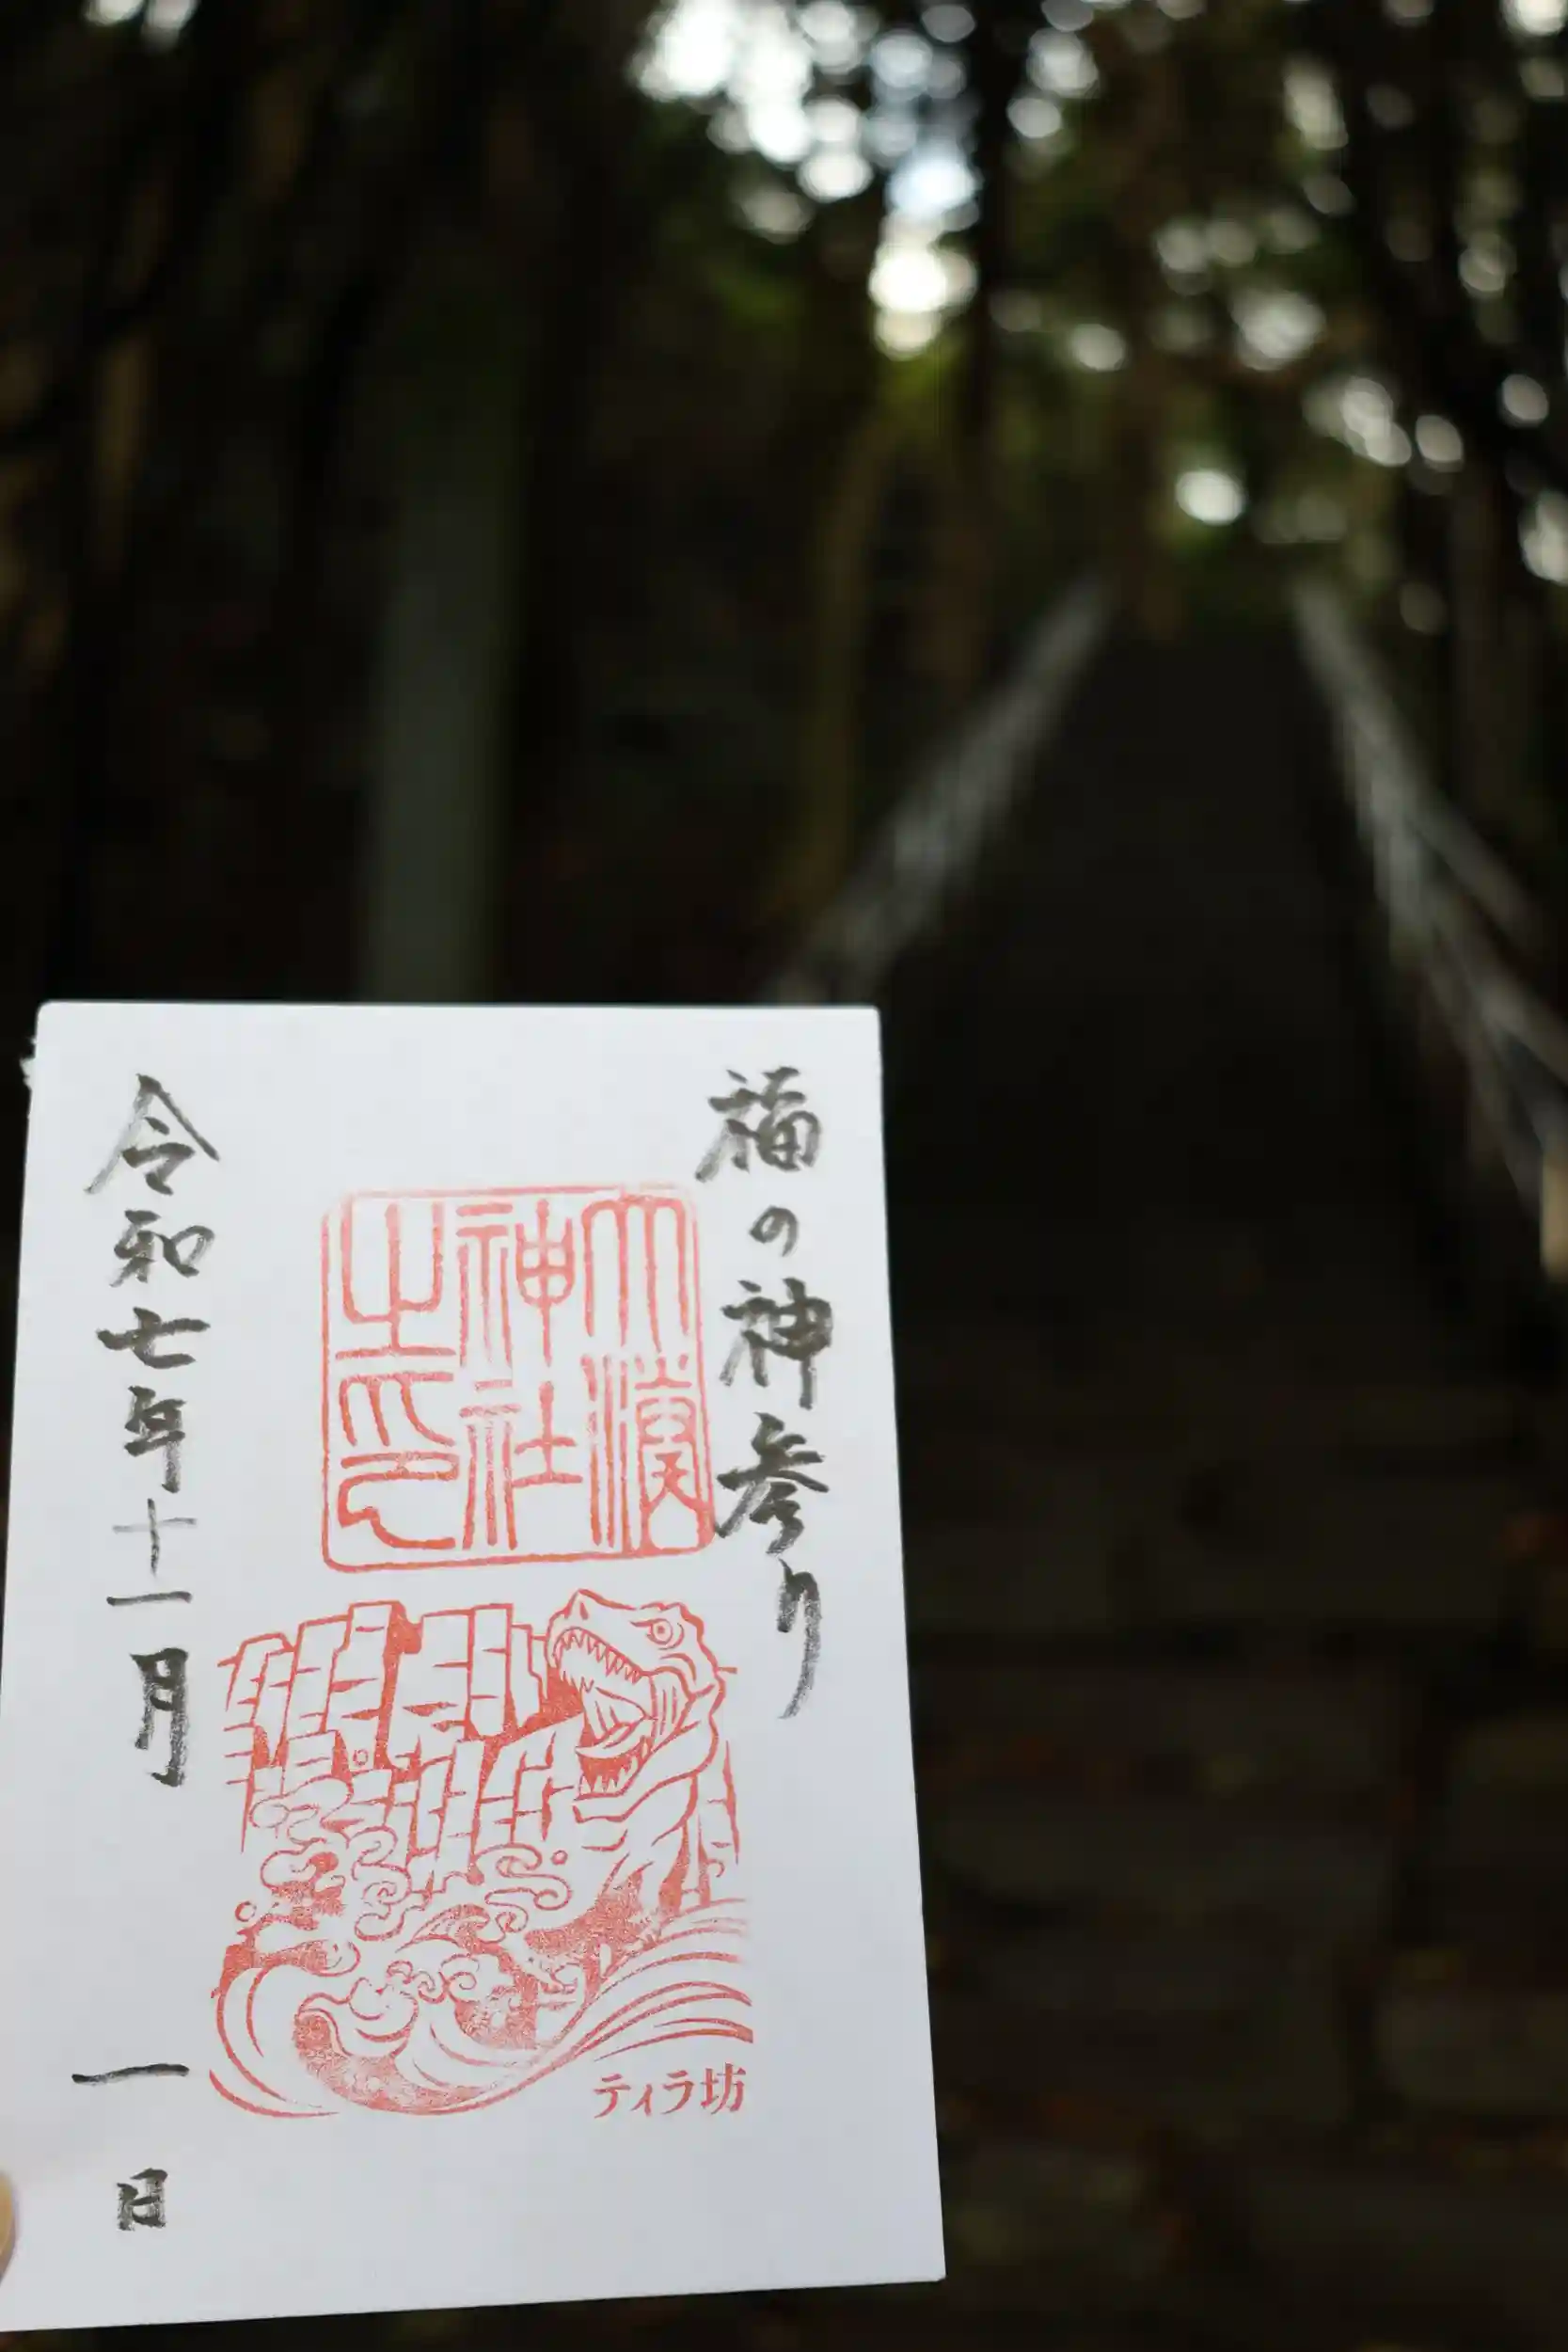 福の神参り
大湊
神社
之印
ティラ坊
令和七年十一月一日